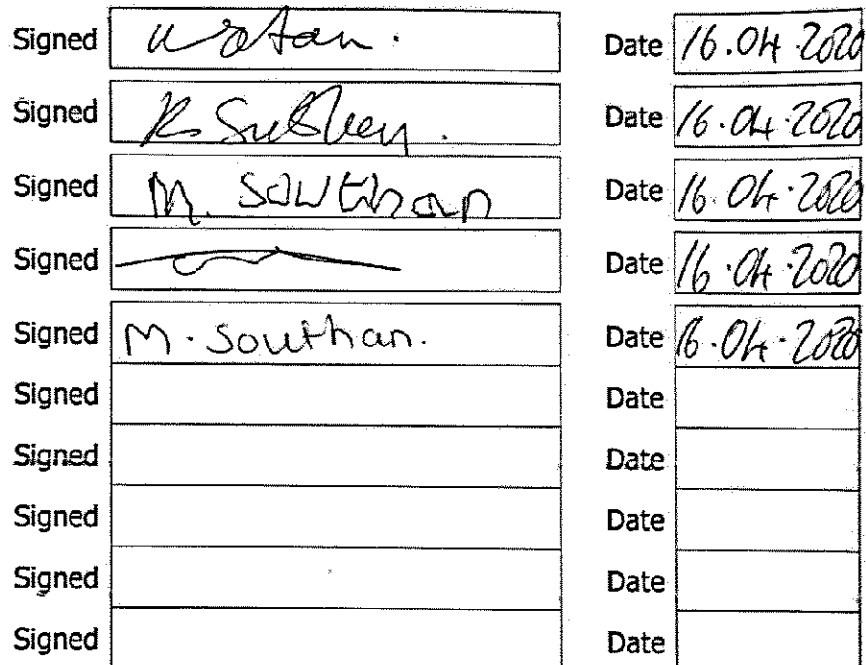 Signed Date 16.04.2020
Signed Date 16.04.2020
Signed M. Southan Date 16.04.2020
Signed Date 16.04.2020
Signed M. Southan. Date 16.04.2020
Signed Date
Signed Date
Signed Date
Signed Date
Signed Date